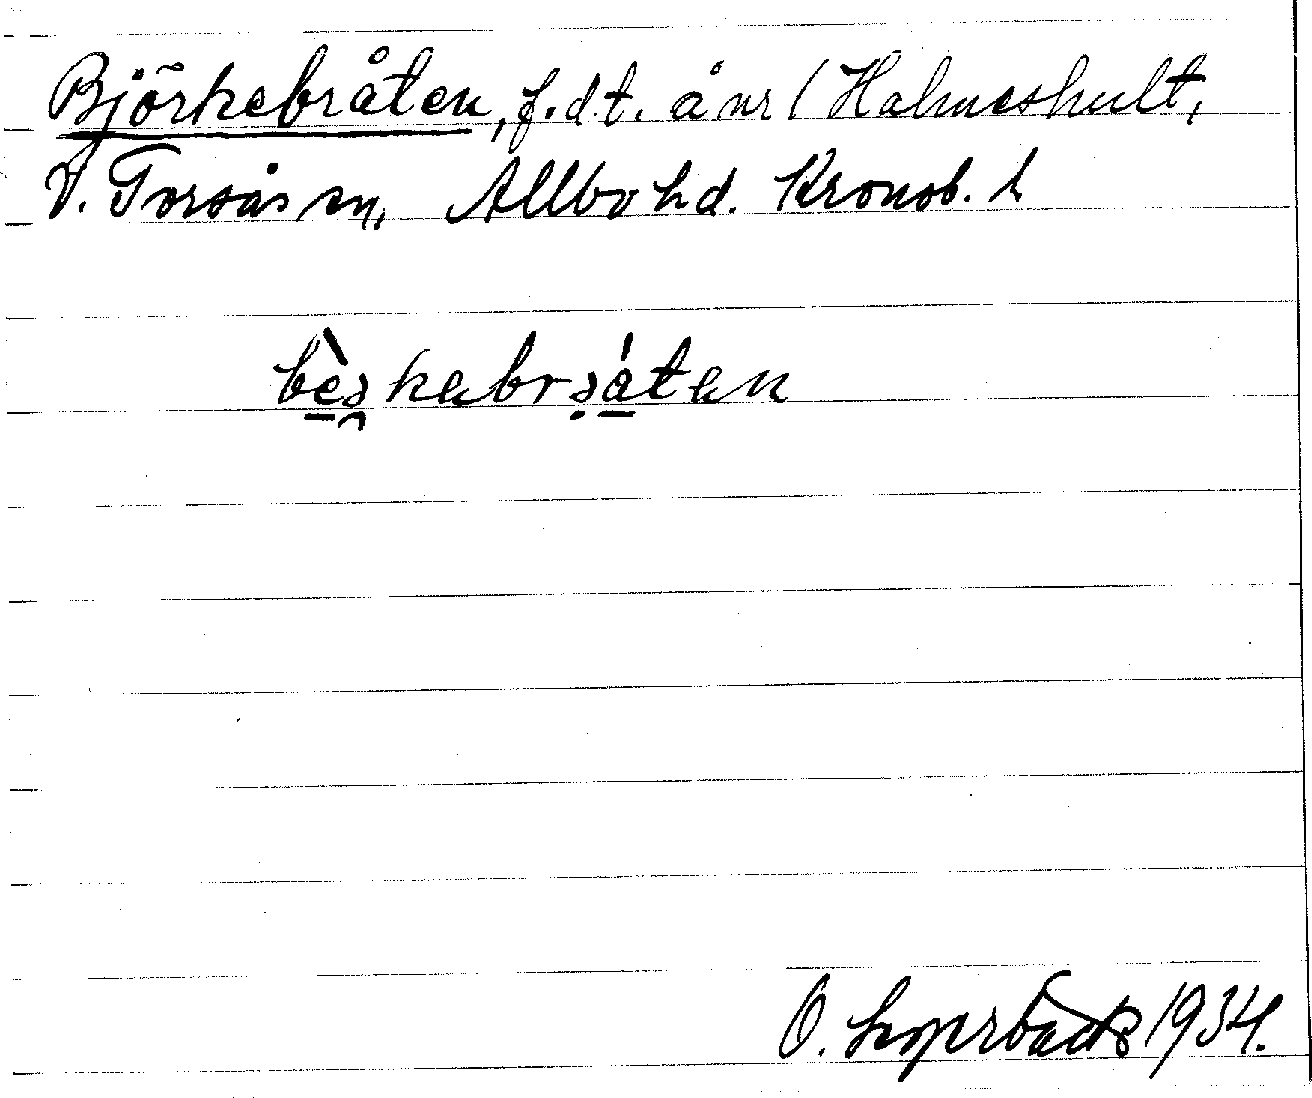 Björkebråten, f.d.t. å nr 1 Holmeshult,
V. Torsås sn, Allbo hd. Kronob. l
bèəkebrəåten
O. 1934.